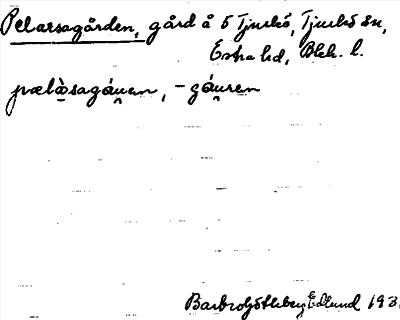 Pelarsagården, gård å 5 Tjurkö, Tjurkö sn,
Östra hd, Blek. l.
pælàsagáu̯en, -gáu̯ren
Barbro Götheberg Edlund 193